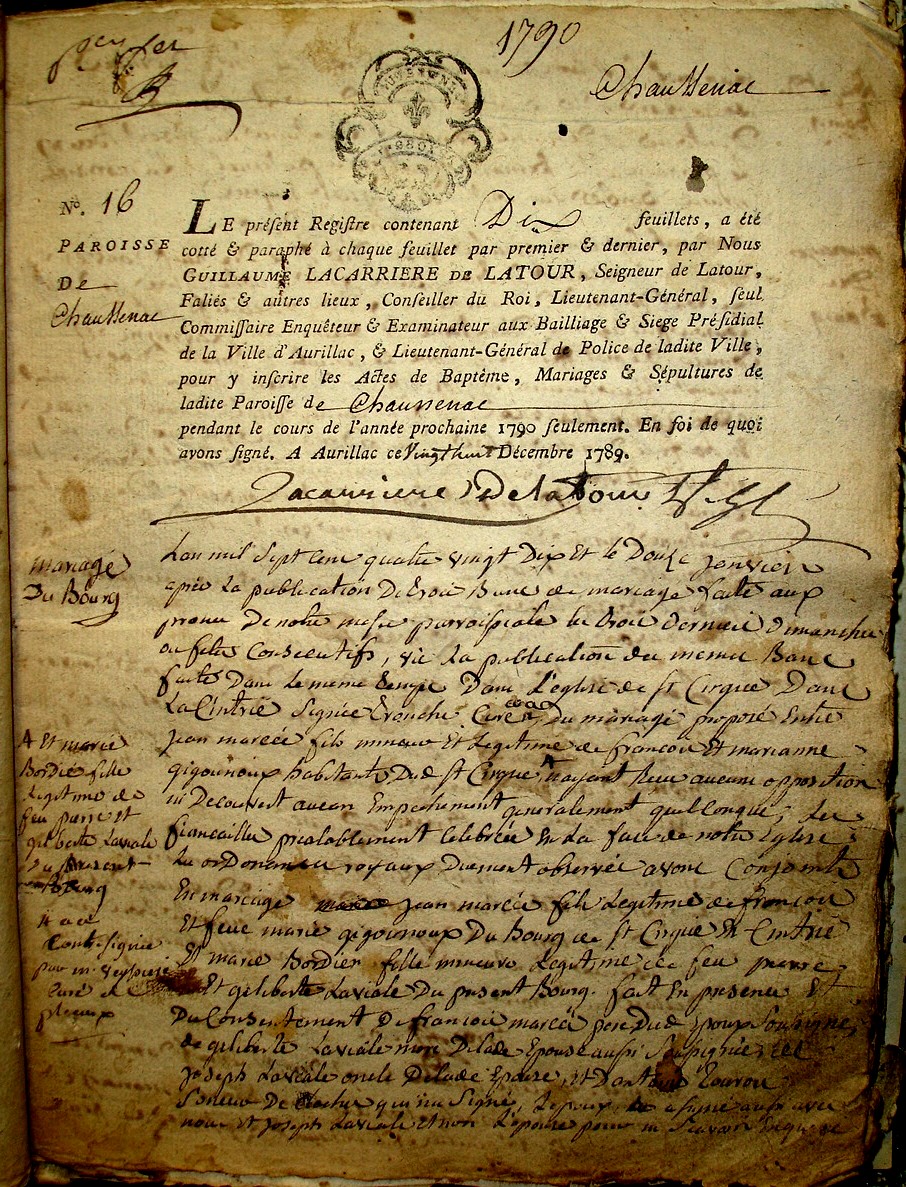 1790
Chaussenac
No. 16
PAROISSE
De
Chaussenac
LE présent Registre contenant Dix feuillets, a été
cotté & paraphé à chaque feuillet par premier & dernier, par Nous
GUILLAUME LACARRIERE DE LATOUR, Seigneur de Latour,
Faliés & autres lieux, Conseiller du Roi, Lieutenant-Général, seul
Commissaire Enquêteur & Examinateur aux Bailliage & Siege Présidial
de la Ville d'Aurillac, & Lieutenant-Général de Police de ladite Ville,
pour y inscrire les Actes de Baptême, Mariages & Sépultures de
ladite Paroisse de Chaussenac
pendant le cours de l'année prochaine 1790 seulement. En foi de quoi
avons signé. A Aurillac ce Vingt huit Décembre 1789.
Lacarriere Delatour
mariage
Du Bourg
Lan mil Sept cent quatre vingt Dix Et le Douze janvier
aprés La publication De trois Bans de mariage faite aux
prone De notre messe parroissiale les trois Derniers Dimanches
ou fetes Consecutifs, vü La publication des memes Bans
faite Dans le meme temps Dans L'eglise de st Cirque Dans
La Cintrie Signée Tronche Curé Du mariage proposé Entre
jean marcée fils mineur Et Legitime de francois Et marianne
gigounoux habitants Dud st Cirque nayant Receu aucune opposition
ni Decouvert aucun Empechement generalement quelconque, Les
fiancailles prealablement Celebrées En La face de notre Eglise
Les ordonances royaux Duement observées avons Conjoints
En mariage jean marcée fils Legitime de francois
Et feue marie gigounoux Du Bourg de st Cirque En Cintrié
Et marie Bordier fille mineure Legitime de feu pierre
Et geliberte Laviale Du present Bourg. fait En presence Et
Du Consentement De francois marcée pere Dud Epoux Soussigné,
de geliberte Laviale mere Delade Epouse aussi Soussignée
joseph Laviale oncle Delade Epouse, Et D'antoine
Soneur De Cloches qui na Signé, Lepoux a signé aussi avec
nous et joseph Laviale Et non L'epouse pour ne Scavoir
A Et marie
Bordié fille
Legitime de
feu pierre et
geliberte Laviale
du present
Bourg
Contresignée
par m. veyssiere
curé de
pleaux